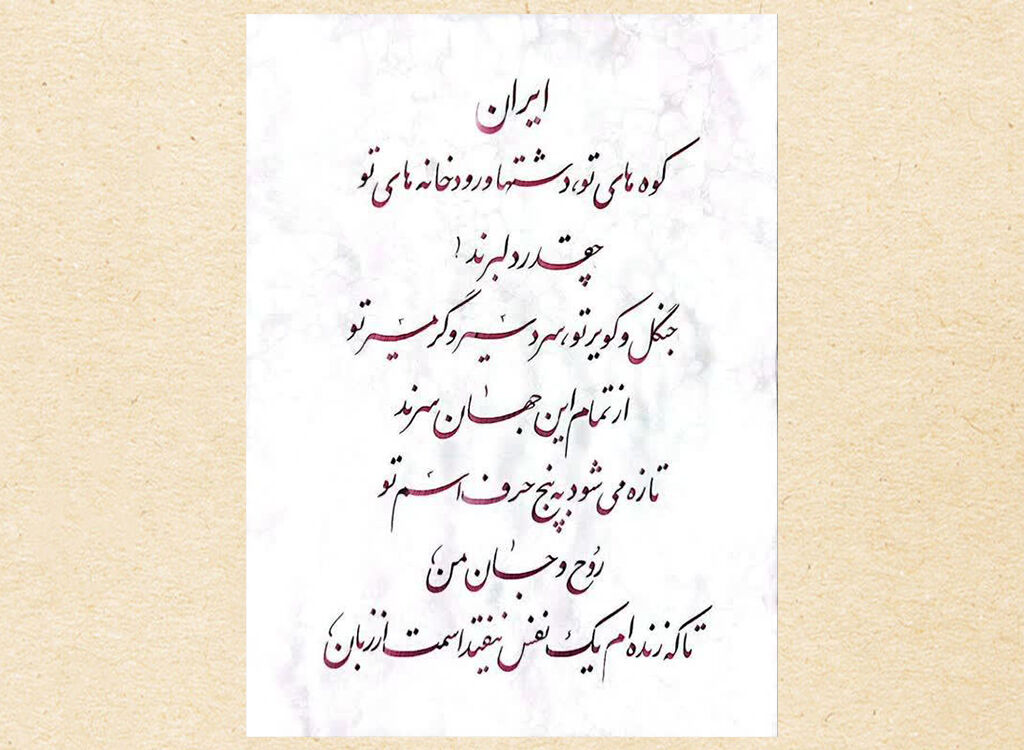 ایران
کوه های تو، دشتها و رودخانه های تو
چقدر دلبرند
جنگل و کویر تو، سردسیر و گرمسیر تو
از تمام این جهان سرند
تازه می شود به پنج حرف اسم تو
رُوح و جان من
تا که زنده ام یک نفس نیفتد اسمت از زبان